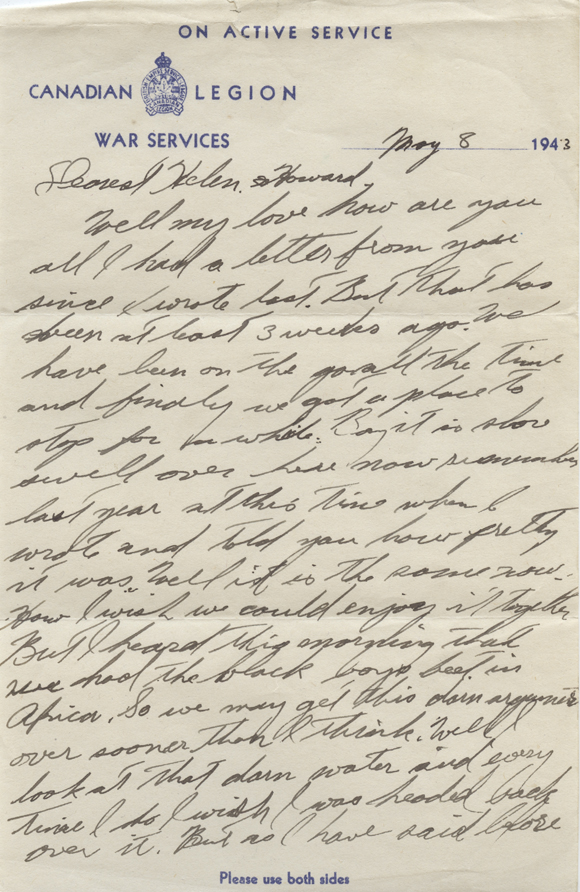 ON ACTIVE SERVICE
CANADIAN LEGION
WAR SERVICES
May 8 1943
Dearest Helen & Howard,
Well my love how are you
all I had a letter from you
since I wrote last. But that has
been at least 3 weeks ago. We
have been on the go all the time
and finally we got a place to
stop for a while. Boy it is
swell over here now remember
last year at this time when I
wrote and told you how pretty
it was. Well it is the same now.
How I wish we could enjoy it together
But I heard this morning that
we had the black boys beet in
Africa. So we may get this darn argument
over sooner than I think. Well I
look at that darn water and every
time I do I wish I was headed back
over it. But as I have said before
Please use both sides